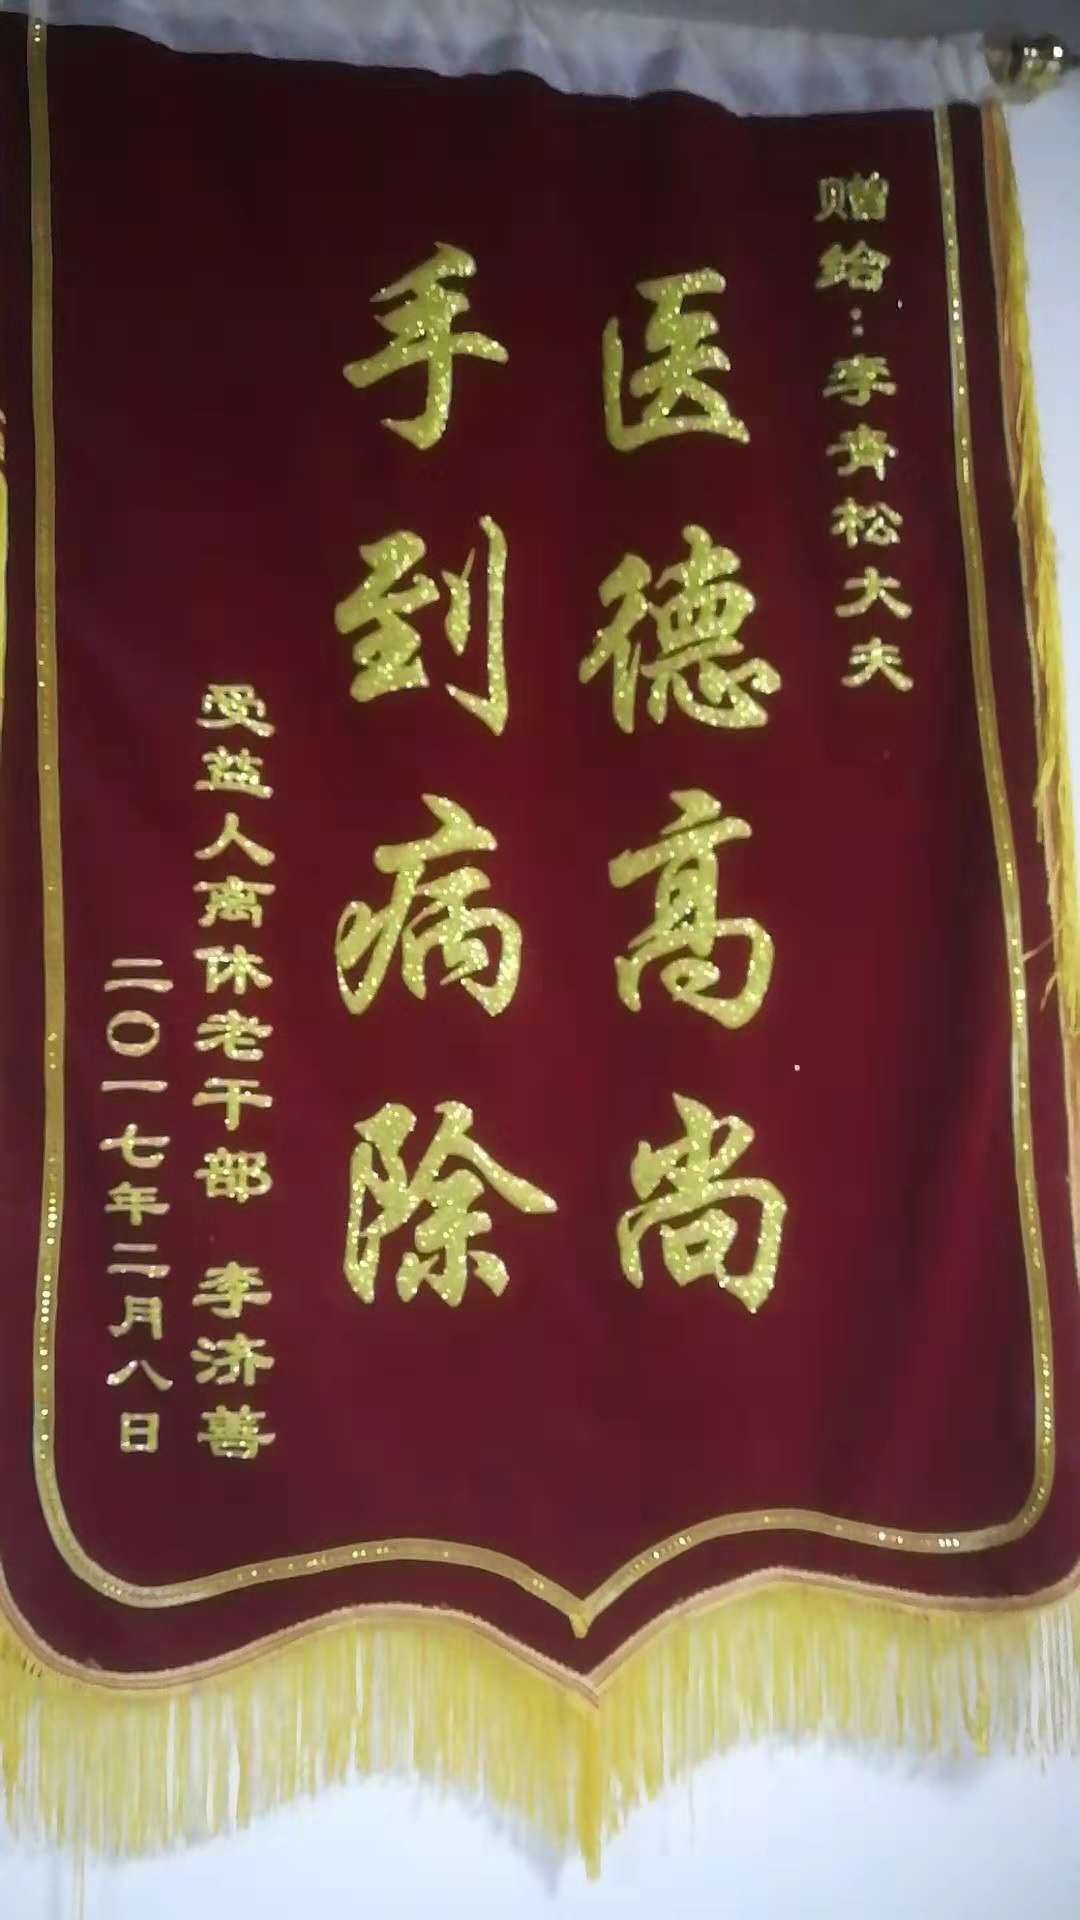 赠给：李青松大夫
医德高尚
手到病除
受益人离休老干部 李济善
二〇一七年二月八日